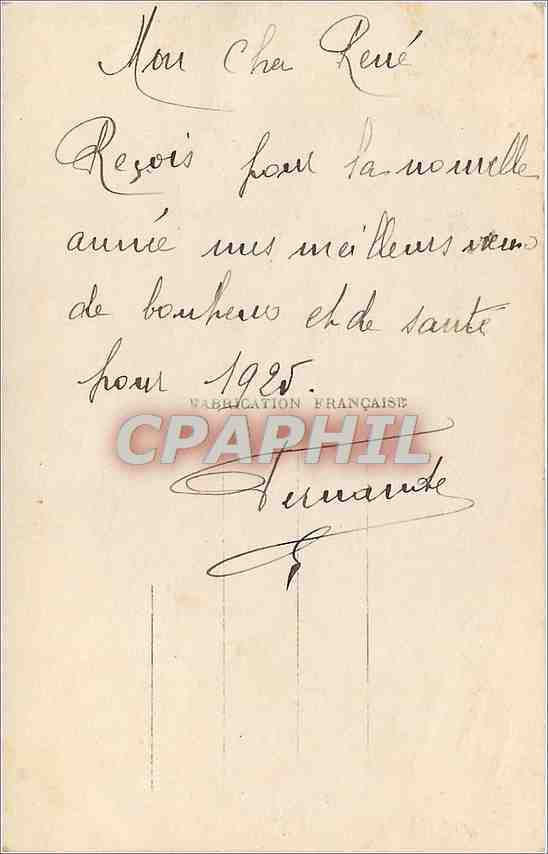 Mon cher René
Reçois pour la nouvelle
année mes meilleurs vœux
de bonheur et de santé
pour 1925.
FABRICATION FRANÇAISE
CPAPHIL
Fernande